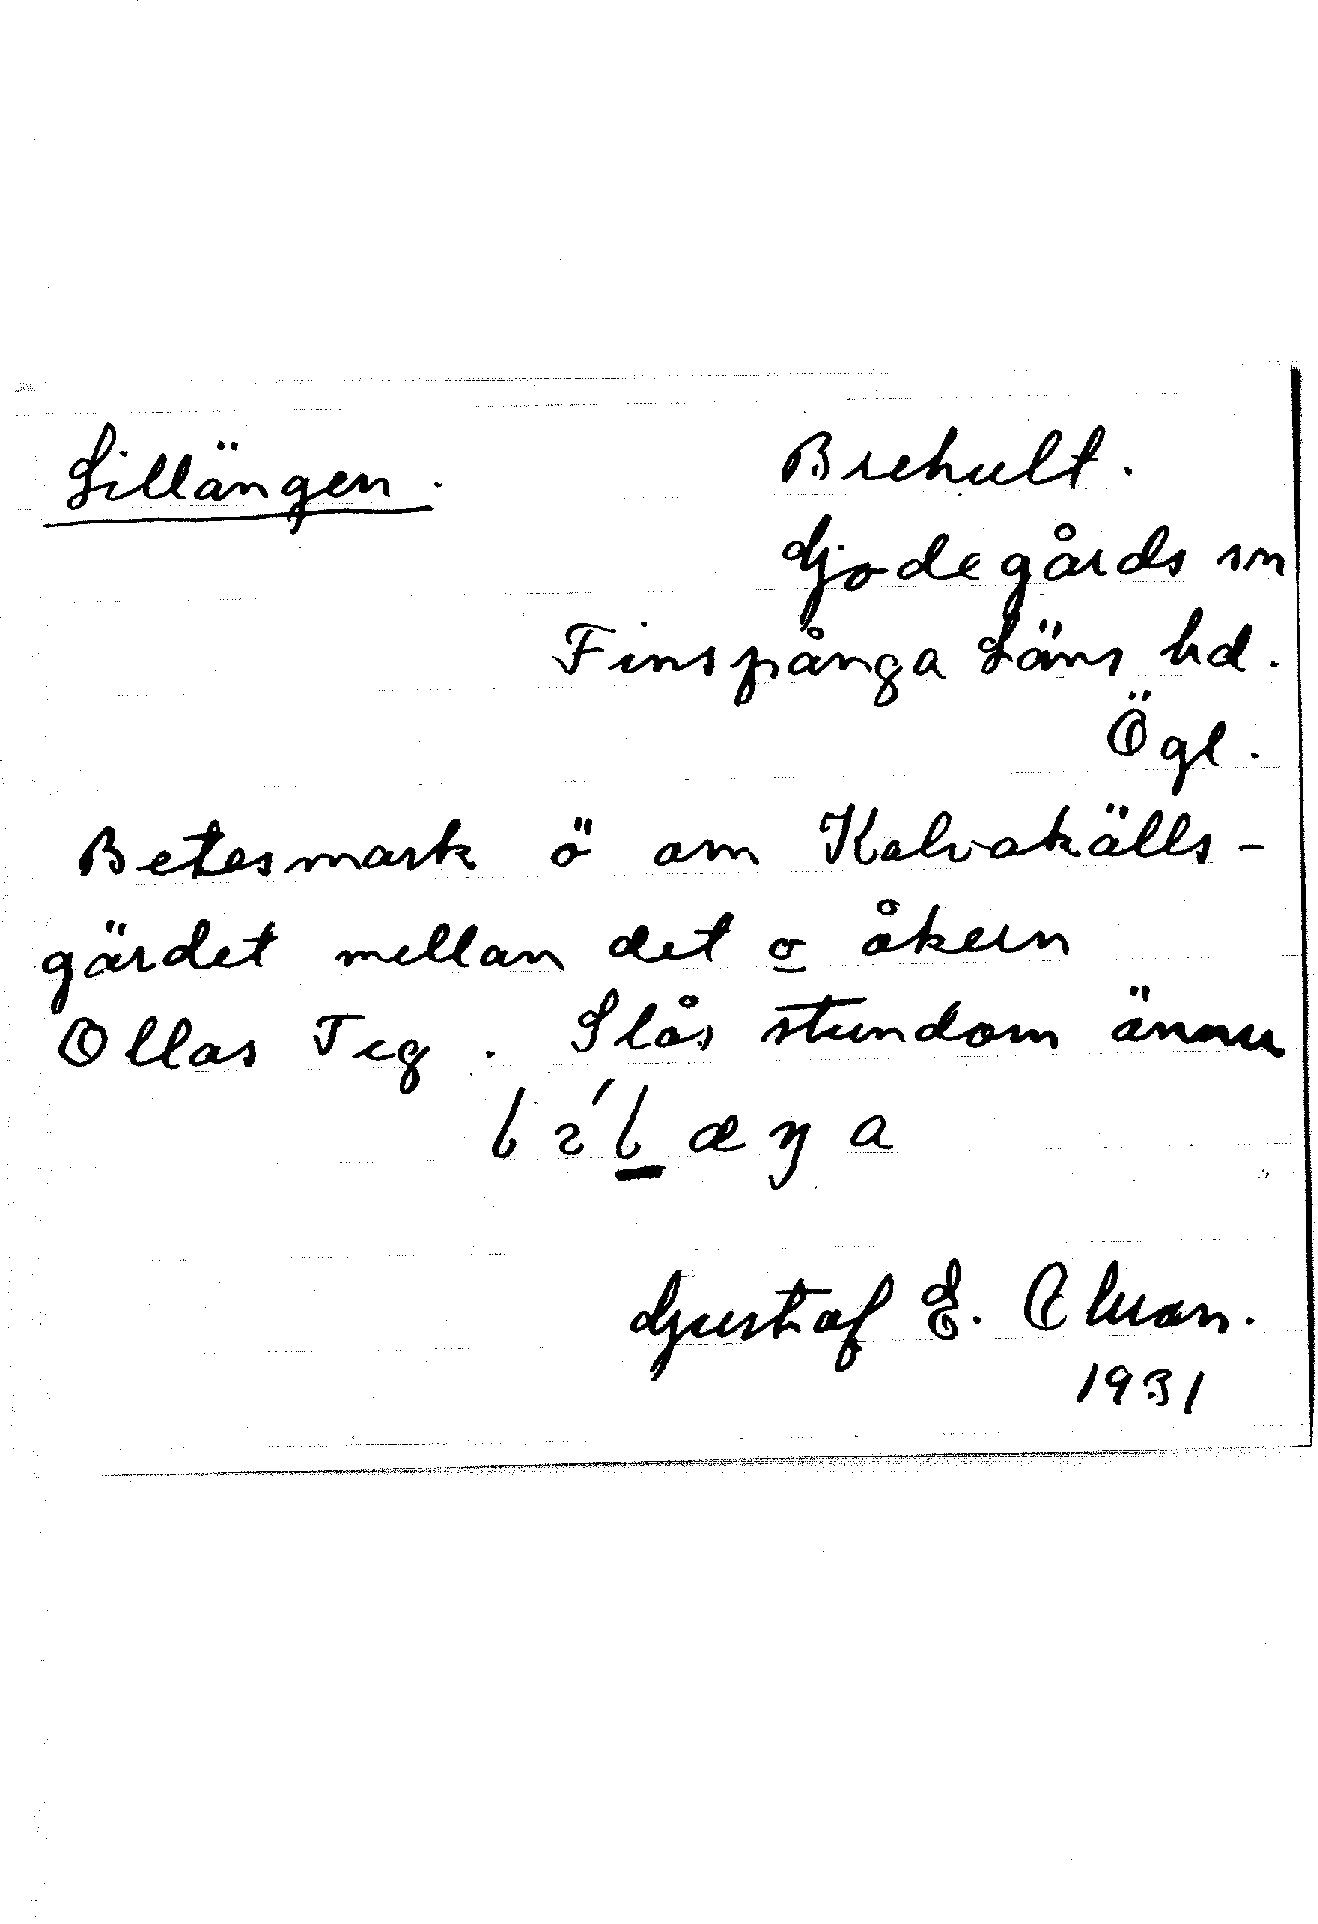 Lillängen. Brehult.
Godegårds sn
Finspånga Läns hd.
Ögl.
Betesmark ö om Kalvakälls-
gärdet mellan det o åkern
Ollas Teg. Slås stundom ännu
Gustaf E.
1931